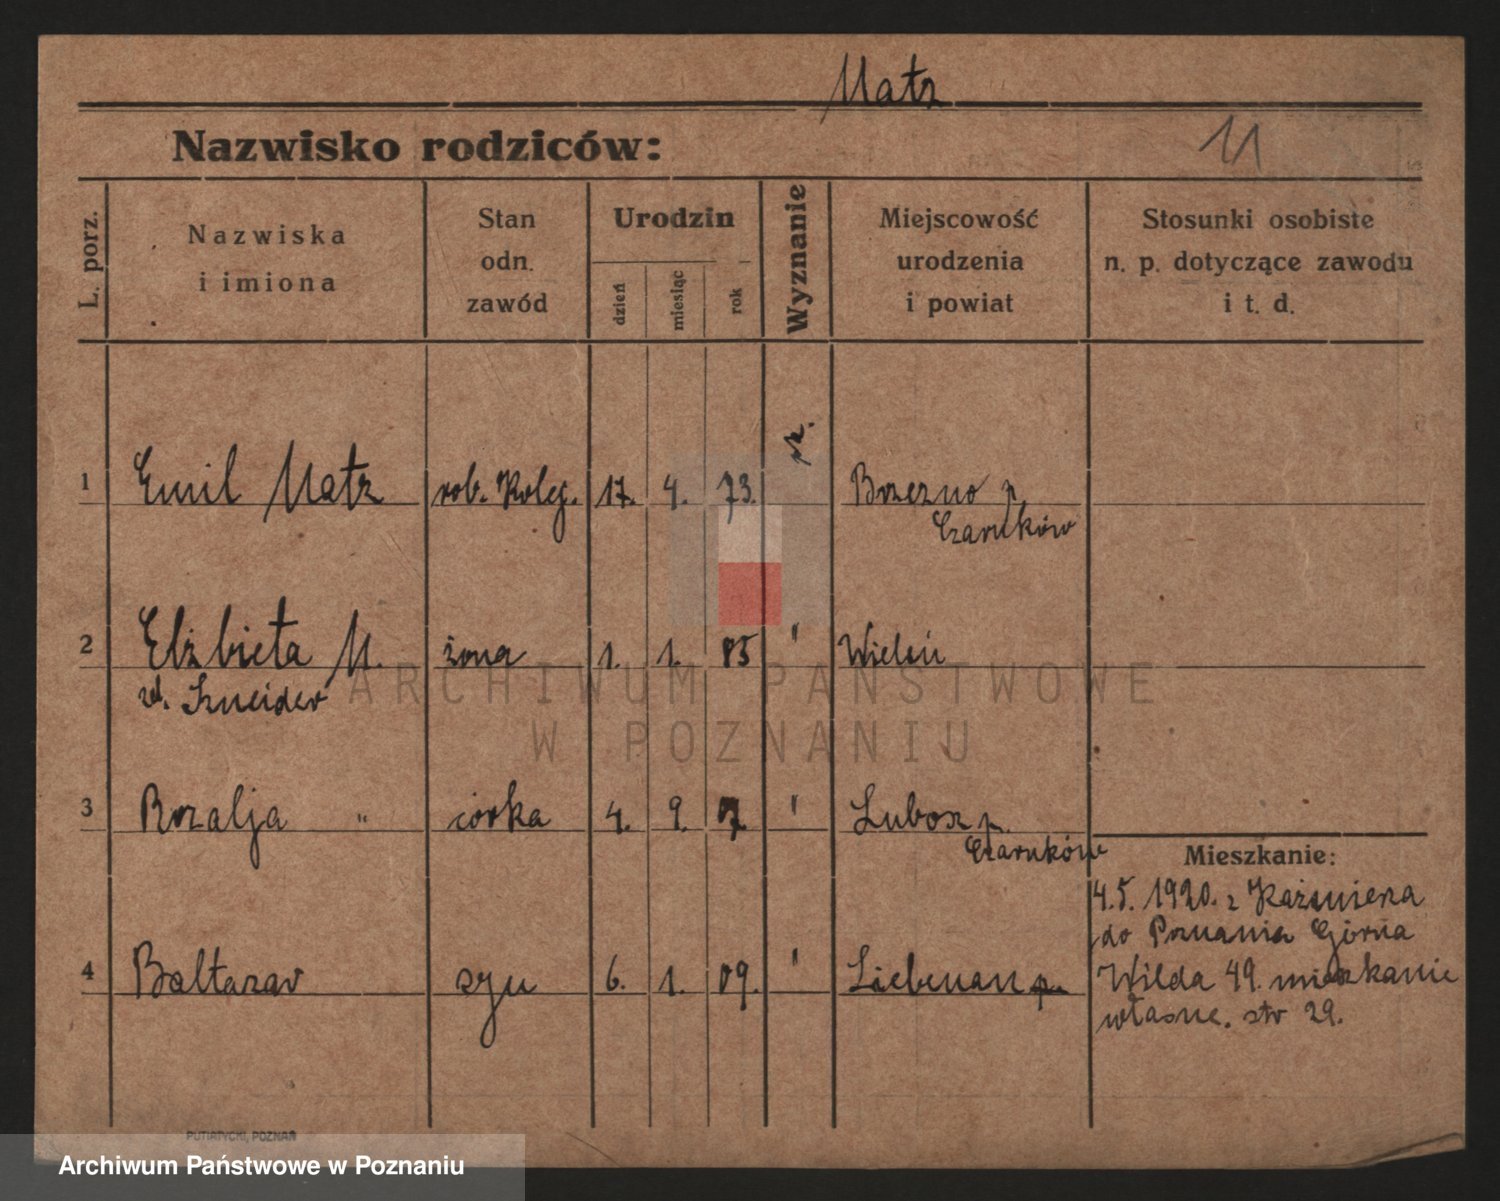 Matz
Nazwisko rodziców:
11
L. porz.
Nazwiska
i imiona
Stan
odn.
zawód
Urodzin
dzień
miesiąc
rok
Wyznanie
Miejscowość
urodzenia
i powiat
Stosunki osobiste
n. p. dotyczące zawodu
i t. d.
1 Emil Matz rob. Kolej. 17. 4. 73. Brzezno p.
Czarnków
2 Elżbieta M. żona 1. 1. 85 " Wieleń
Szneider
3 Rozalja " córka 4. 9. 7 " Lubosz p.
Czarnków
Mieszkanie:
4.5. 1920. z Kaźmierza
do Poznania Górna
4 Baltazar syn 6. 1. 09. " Liebenau
Wilda 49. mieszkanie
własne. str 29.
ARCHIWUM PAŃSTWOWE
W POZNANIU
PUTIATYCKI, POZNAŃ
Archiwum Państwowe w Poznaniu